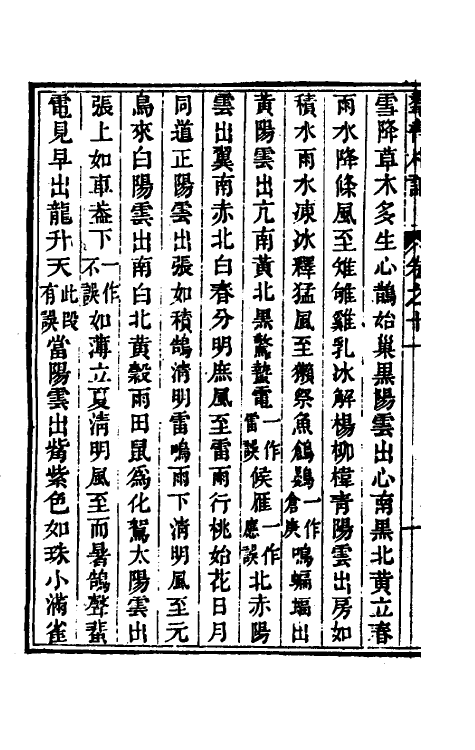 雪降草木多生心鵲始巢黒陽雲出心南黒北黄立春
雨水降條風至雉雊雞乳冰解楊柳樟青陽雲出房如
積水雨水凍冰釋猛風至獺祭魚鶬鷃一作倉庚鳴蝙蝠出
黄陽雲出亢南黄北黒驚蟄電一作雷誤候雁一作應誤北赤陽
雲出翼南赤北白春分明庶風至雷雨行桃始花日月
同道正陽雲出張如積鵠清明雷鳴雨下清明風至元
鳥來白陽雲出南白北黄穀雨田鼠為化鴽太陽雲出
張上如車葢下一作不誤如薄立夏清明風至而暑鵠聲蜚
電見早出龍升天此段有誤當陽雲出觜紫色如珠小滿雀